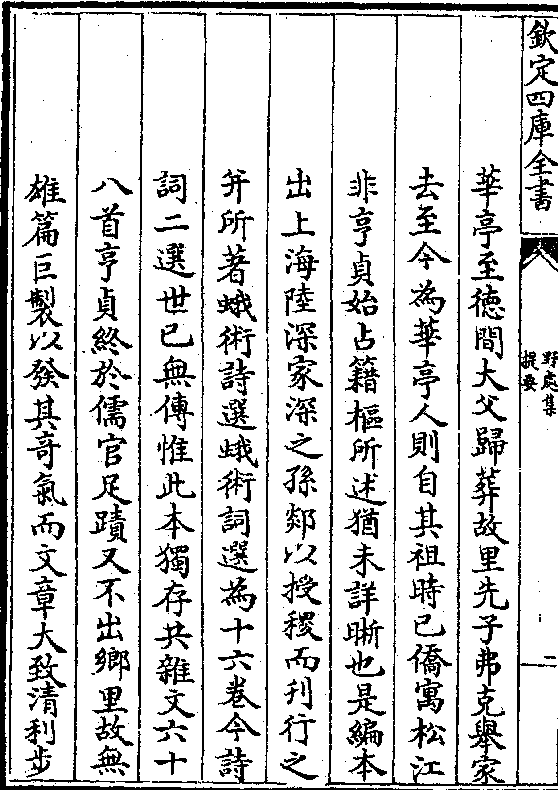 欽定四庫全書
野處集
提要
二
華亭至徳間大父歸葬故里先子弗克舉家
去至今為華亭人則自其祖時已僑寓松江
非亨貞始占籍樞所述猶未詳晰也是編本
出上海陸深家深之孫郯以授稷而刊行之
并所著蛾術詩選蛾術詞選為十六卷今詩
詞二選世已無傳惟此本獨存共雜文六十
八首亨貞終於儒官足蹟又不出鄉里故無
雄篇巨製以發其奇氣而文章大致清利步